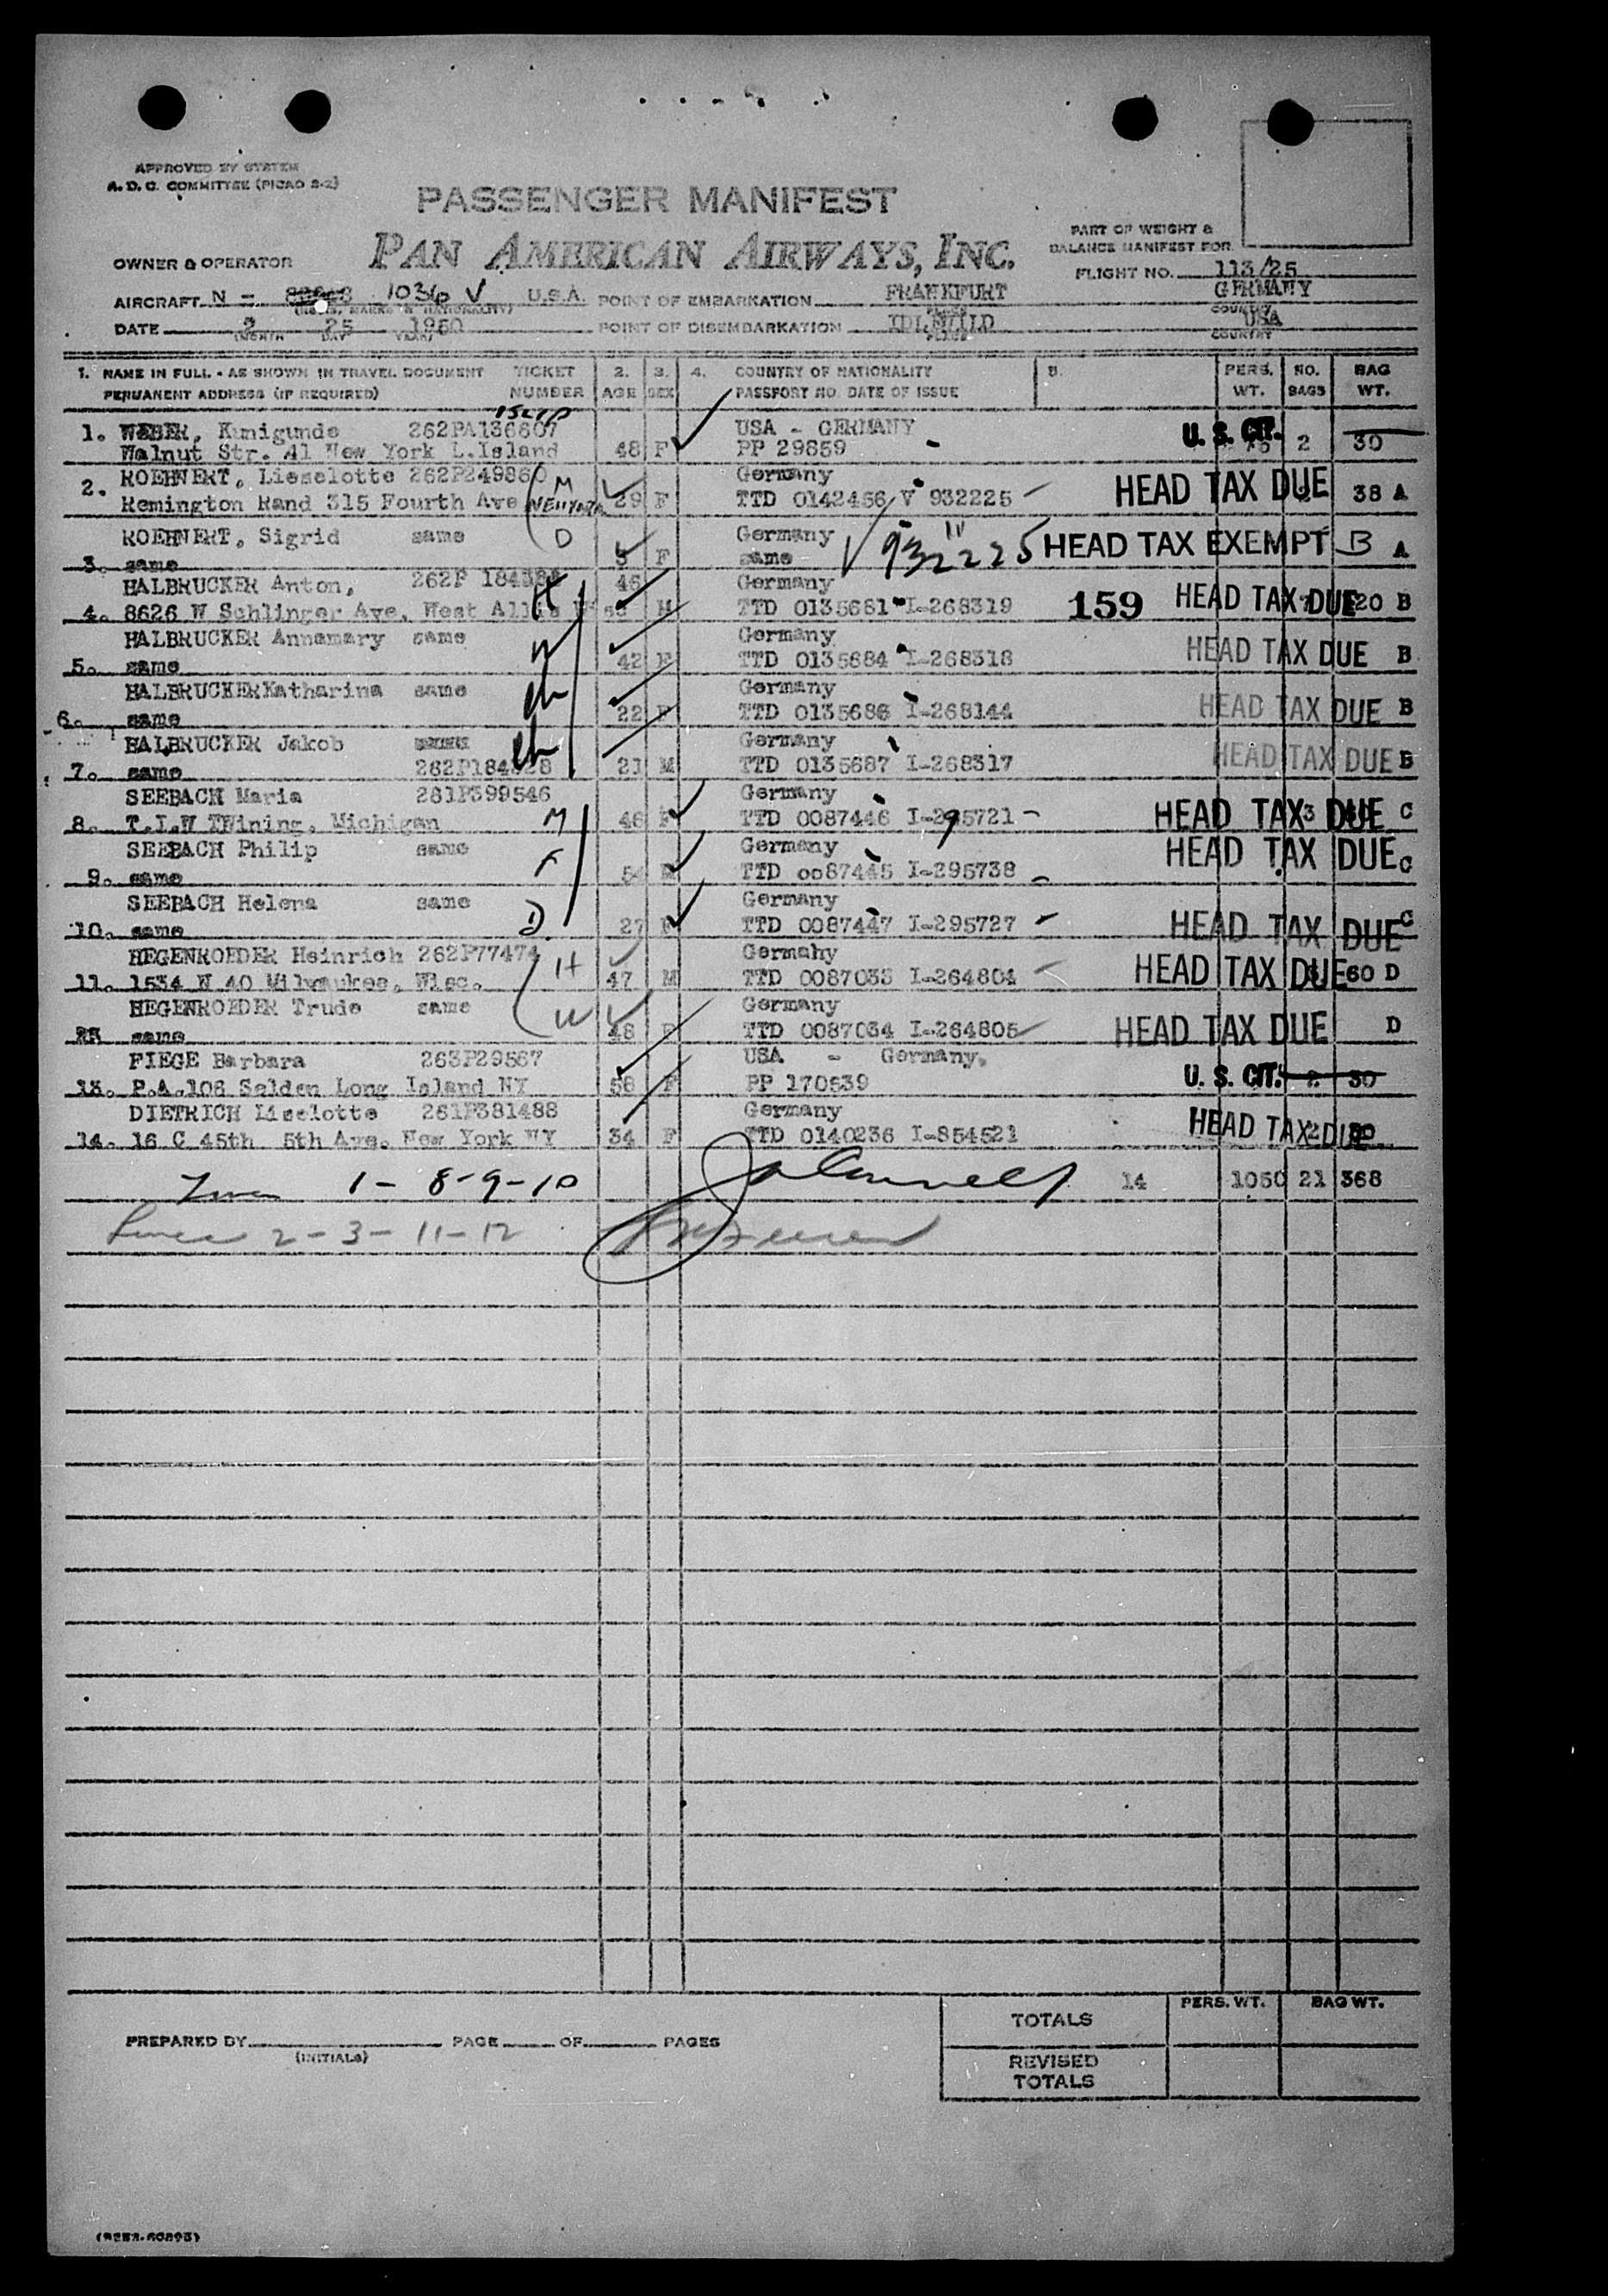 APPROVED BY SYSTEM
A. D. C. COMMITTEE (PICAO 2-2)
PASSENGER MANIFEST
PART OF WEIGHT &
BALANCE MANIFEST FOR
OWNER & OPERATOR PAN AMERICAN AIRWAYS, INC.
FLIGHT NO. 113/25
AIRCRAFT N - 1036 V U.S.A. POINT OF EMBARKATION FRANKFURT GERMANY
COUNTRY
DATE 2 25 1950 POINT OF DISEMBARKATION IDLEWILD USA
MONTH DAY YEAR PLACE COUNTRY
1. NAME IN FULL - AS SHOWN IN TRAVEL DOCUMENT TICKET 2. 3. 4. COUNTRY OF NATIONALITY 5. PERS. NO. BAG
PERMANENT ADDRESS (IF REQUIRED) NUMBER AGE SEX PASSPORT NO. DATE OF ISSUE WT. BAGS WT.
ISLIP
1. WEBER, Kunigunde 262PA136807 USA - GERMANY U. S. CIT.
Walnut Str. 41 New York L.Island 48 F PP 29859 2 30
ROEHNERT, Lieselotte 262P249860 M Germany HEAD TAX DUE
2. Remington Rand 315 Fourth Ave NEW YORK 29 F TTD 0142456 V 932225 38 A
ROEHNERT, Sigrid same D Germany 932225 HEAD TAX EXEMPT B A
3. same F same
HALBRUCKER Anton, 262P H 46 Germany
4. 8626 W Schlinger Ave, West Allis M TTD 0135681 I-268319 159 HEAD TAX DUE 20 B
HALBRUCKER Annamary same W Germany HEAD TAX DUE B
5. same 42 F TTD 0135684 I-268318
HALBRUCKER Katharina same ch Germany HEAD TAX DUE B
6. same 22 F TTD 0135686 I-268144
HALBRUCKER Jakob ch Germany HEAD TAX DUE B
7. same 262P184328 21 M TTD 0135687 I-268317
SEEBACH Maria 281P399546 Germany
8. T.I.W TWining, Michigan M 46 F TTD 0087446 I-295721 HEAD TAX DUE C
SEEBACH Philip same F Germany HEAD TAX DUE C
9. same 54 M TTD 0087445 I-295738
SEEBACH Helena same D. Germany
10. same 27 F TTD 0087447 I-295727 HEAD TAX DUE C
HEGENROEDER Heinrich 262P77474 H Germany
11. 1534 N 40 Milwaukee, Wisc. 47 M TTD 0087033 I-264804 HEAD TAX DUE 60 D
HEGENROEDER Trude same W Germany HEAD TAX DUE D
same 48 F TTD 0087034 I-264805
FIEGE Barbara 263P29567 USA - Germany.
13. P.A.106 Selden Long Island NY 58 F PP 170539 U. S. CIT. 2 30
DIETRICH Liselotte 281P381488 Germany
14. 16 C 45th 5th Ave. New York NY 34 F TTD 0140236 I-854521 HEAD TAX DUE
1- 8-9-10 14 1050 21 368
2-3-11-12
TOTALS PERS. WT. BAG WT.
PREPARED BY PAGE OF PAGES
(INITIALS)
REVISED
TOTALS